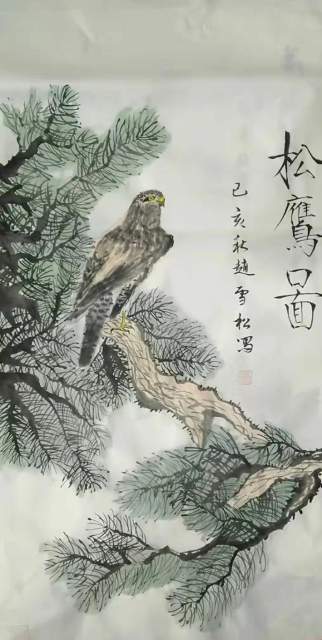 松鷹啚
己亥秋趙雪松写